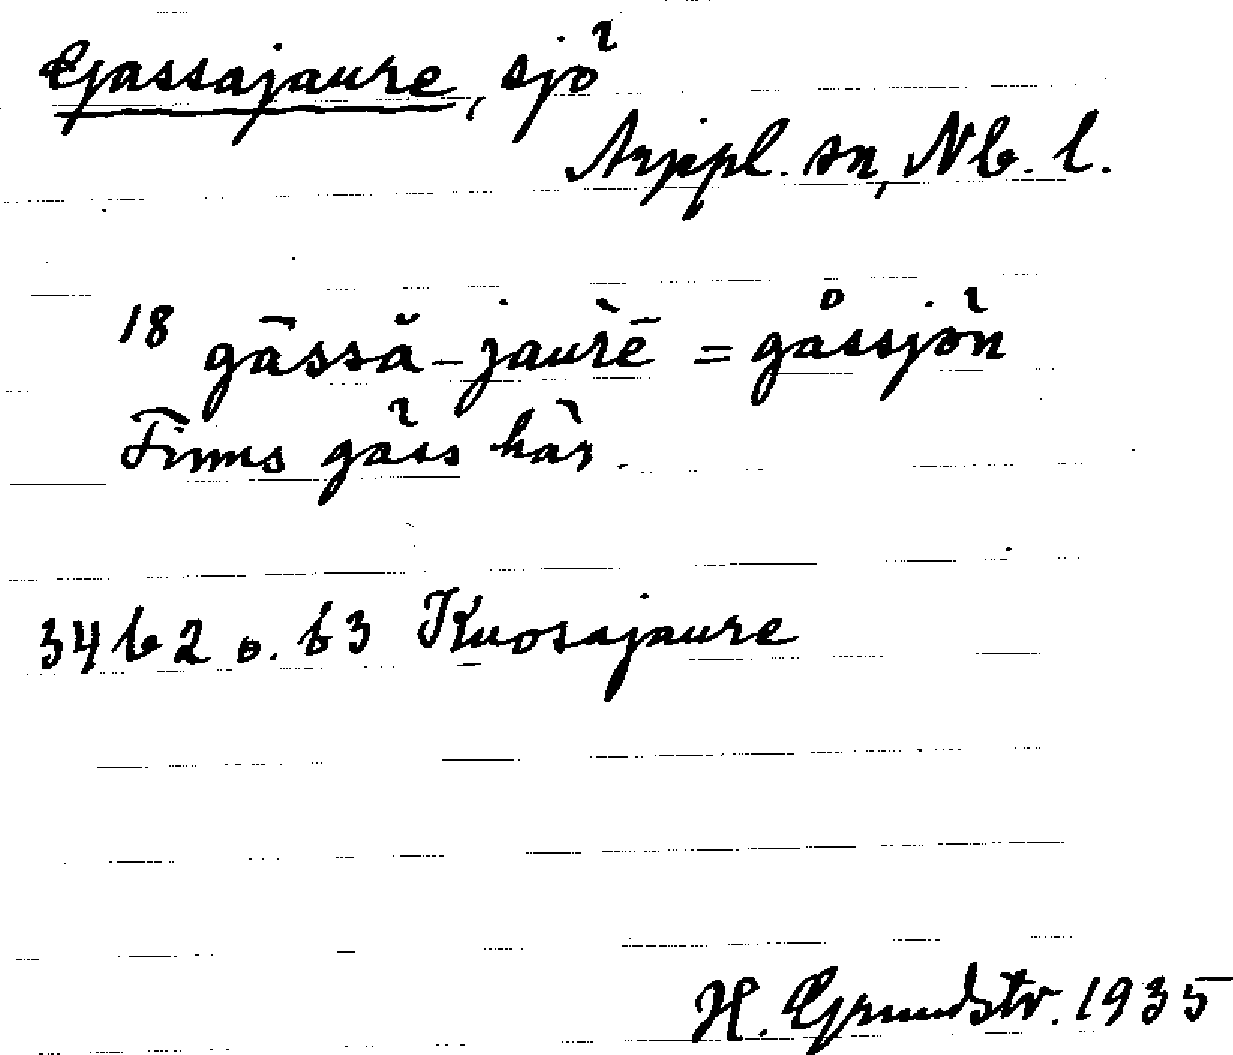 Gassajaure, sjö
Arjepl. sn, Nb. l.
18 gāssă-jaurē = gåssjön
Finns gäss här.
34 b 2 o. b 3 Kuosajaure
H. Grundstr. 1935